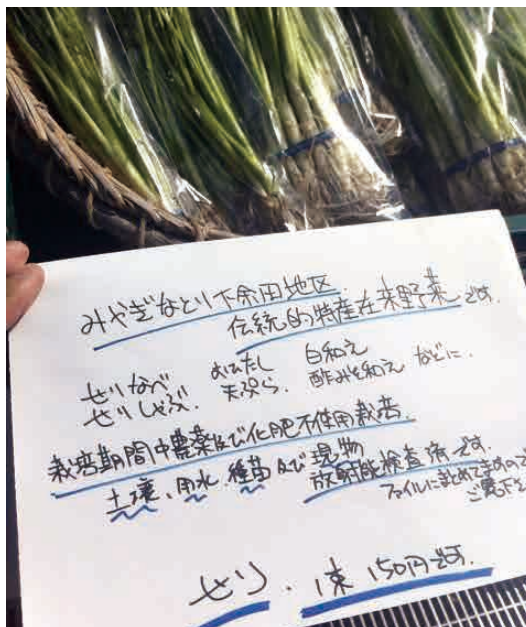 みやぎなとり下余田地区
伝統的特産在来野菜です.
せりなべ おひたし 白和え
せりしゃぶ. 天ぷら. 酢みそ和え などに.
栽培期間中農薬及び化肥不使用栽培.
土壌、用水、種苗及び現物
放射能検査済です.
ファイルにまとめてますので
ご覧下さ
せり. 1束 150円です.